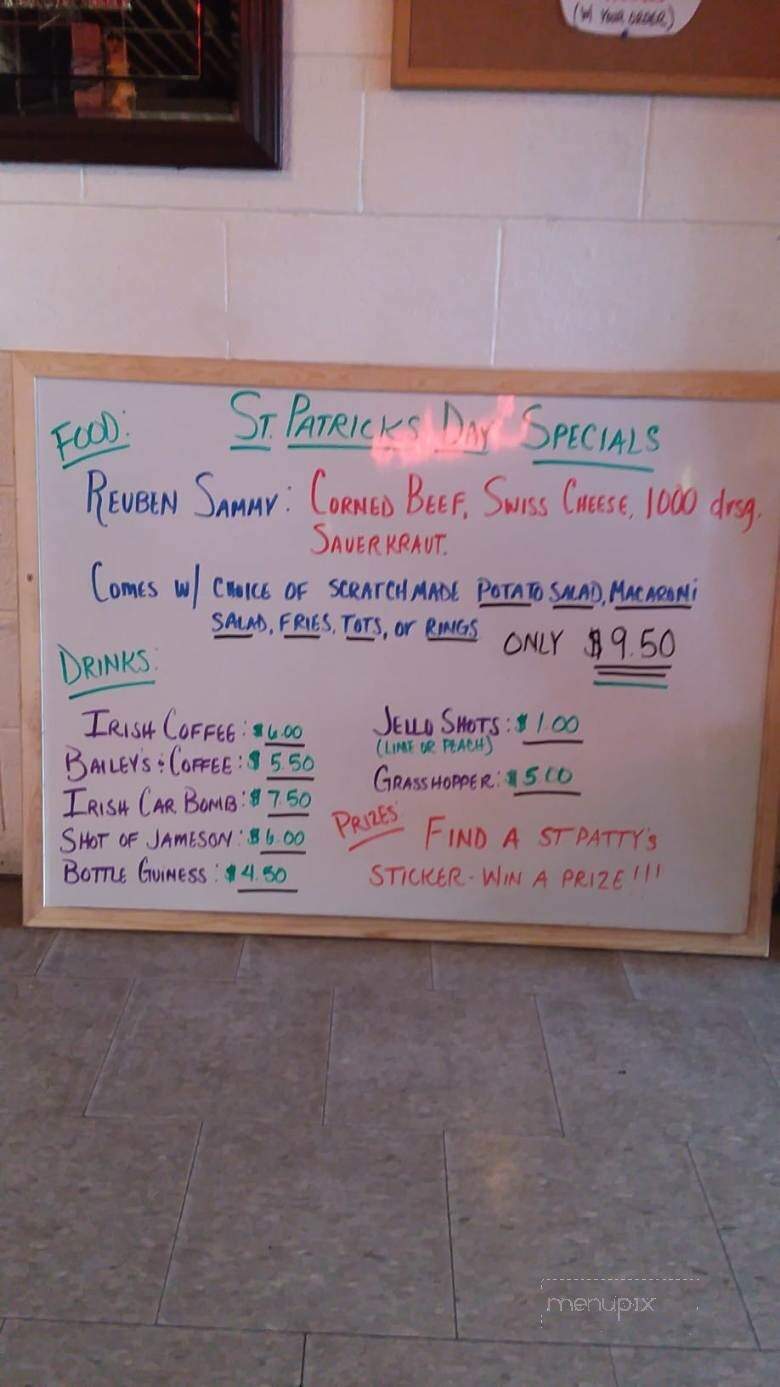 (W/ YOUR ORDER)
ST. PATRICKS DAY SPECIALS
FOOD:
REUBEN SAMMY: CORNED BEEF, SWISS CHEESE, 1000 drsg.
SAUERKRAUT.
COMES W/ CHOICE OF SCRATCHMADE POTATO SALAD, MACARONI
SALAD, FRIES, TOTS, or RINGS
ONLY $9.50
DRINKS:
IRISH COFFEE: $6.00
BAILEY'S & COFFEE: $5.50
IRISH CAR BOMB: $7.50
SHOT OF JAMESON: $6.00
BOTTLE GUINESS: $4.50
JELLO SHOTS: $1.00
(LIME OR PEACH)
GRASSHOPPER: $5.00
PRIZES
FIND A ST PATTY'S
STICKER - WIN A PRIZE!!!
menupix